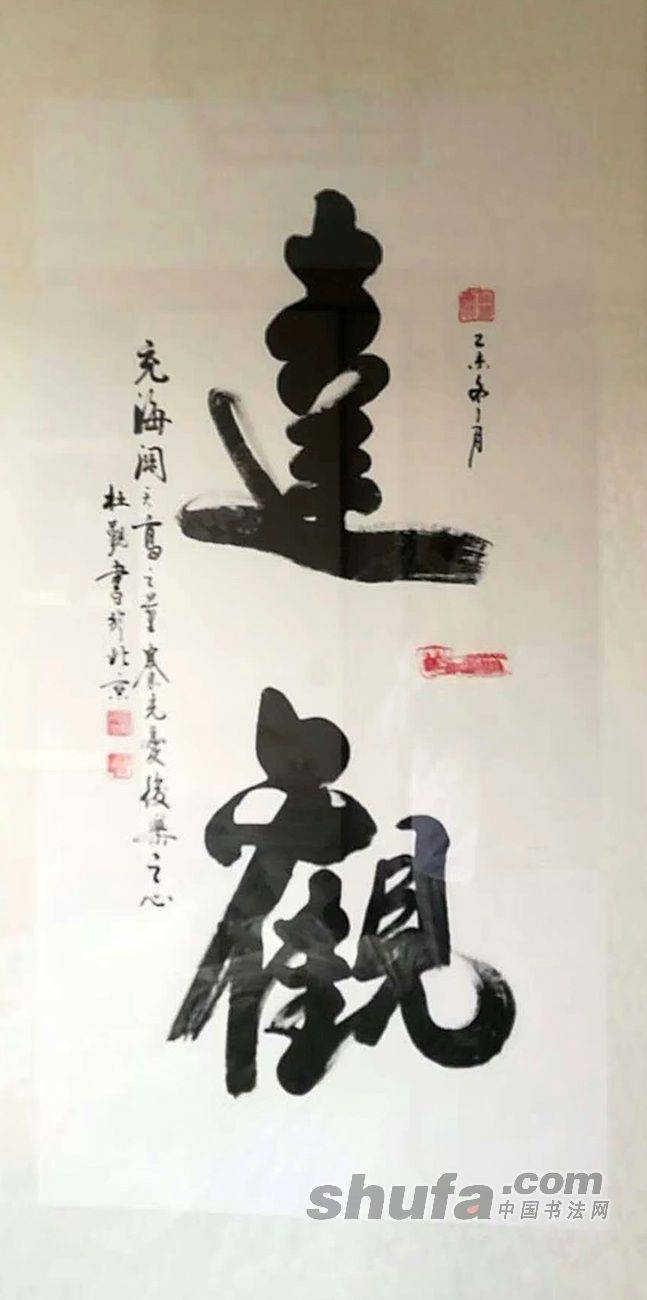 乙未冬月
達觀
充海闊天高之量養先憂後樂之心
杜觀書於北京
shufa.com
中国书法网